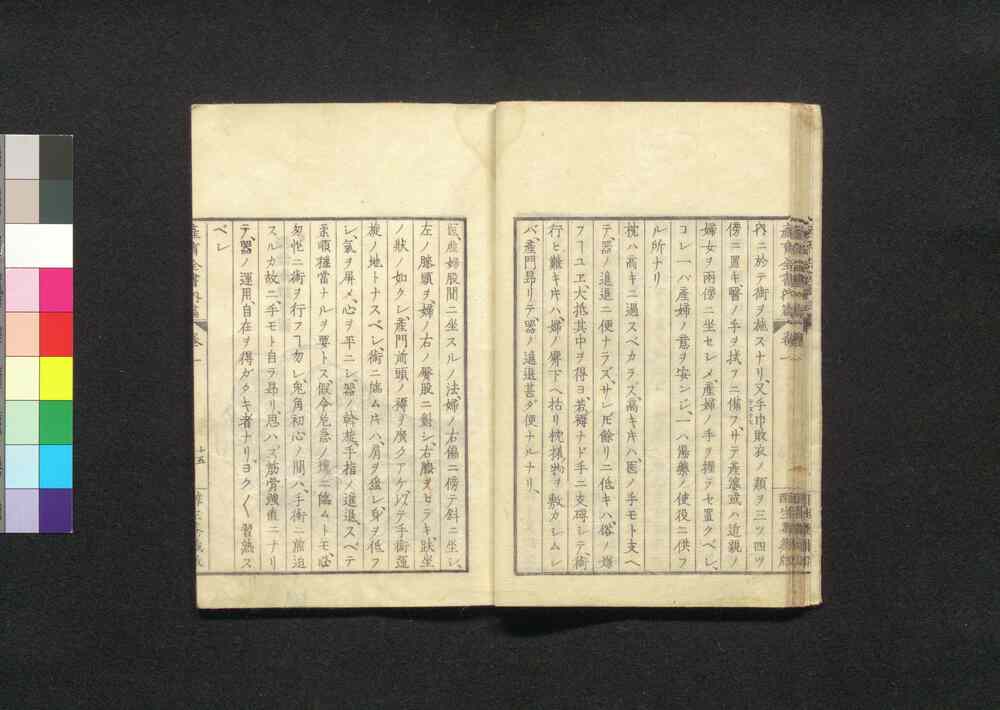 内ニ於テ術ヲ施スナリ、又手巾敗衣ノ類ヲ三ツ四ツ
傍ニ置キ、醫ノ手ヲ拭フニ備フ、サテ産婆或ハ近親ノ
婦女ヲ兩傍ニ坐セシメ、産婦ノ手ヲ握テセ置クベシ、
コレ一ハ産婦ノ意ヲ安ンジ、一ハ湯藥ノ使役ニ供フ
ル所ナリ
枕ハ高キニ過スベカラズ、高キ片ハ、医ノ手モト支ヘ
テ、器ノ進退ニ便ナラズ、サレ𪜈餘リニ低キハ、俗ノ嫌
フヿユヱ、大抵其中ヲ得ヨ、若褥ナド手ニ支碍シテ、術
行ヒ難キ片ハ、婦ノ臀下ヘ括リ枕様ノ物ヲ敷カシムレ
バ、産門昂リテ、器ノ進退甚ダ便ナルナリ、
医産婦股間ニ坐スルノ法、婦ノ右偏ニ傍テ斜ニ坐シ、
左ノ膝頭ヲ、婦ノ右ノ臀股ニ對シ、右膝ヲヒラキ、趺坐
ノ状ノ如クシ、産門前頭ノ褥ヲ廣クアケ、以テ手術運
旋ノ地トナスベシ、術ニ臨ム片ハ、肩ヲ猛シ、身ヲ低フ
シ、氣ヲ屏メ、心ヲ平ニシ、器ノ斡旋、手指ノ進退、スベテ
柔順穩當ナルヲ要トス、假令危急ノ塲ニ臨ムトモ、必
怱忙ニ術ヲ行フヿ勿レ、兎角初心ノ間ハ、手術ニ旅迫
スルカ故ニ、手モト自ラ昂リ、思ハズ筋骨強直ニナリ
テ、器ノ運用、自在ヲ得ガタキ者ナリ、ヨク〱習熟ス
ベシ
卷一
十五